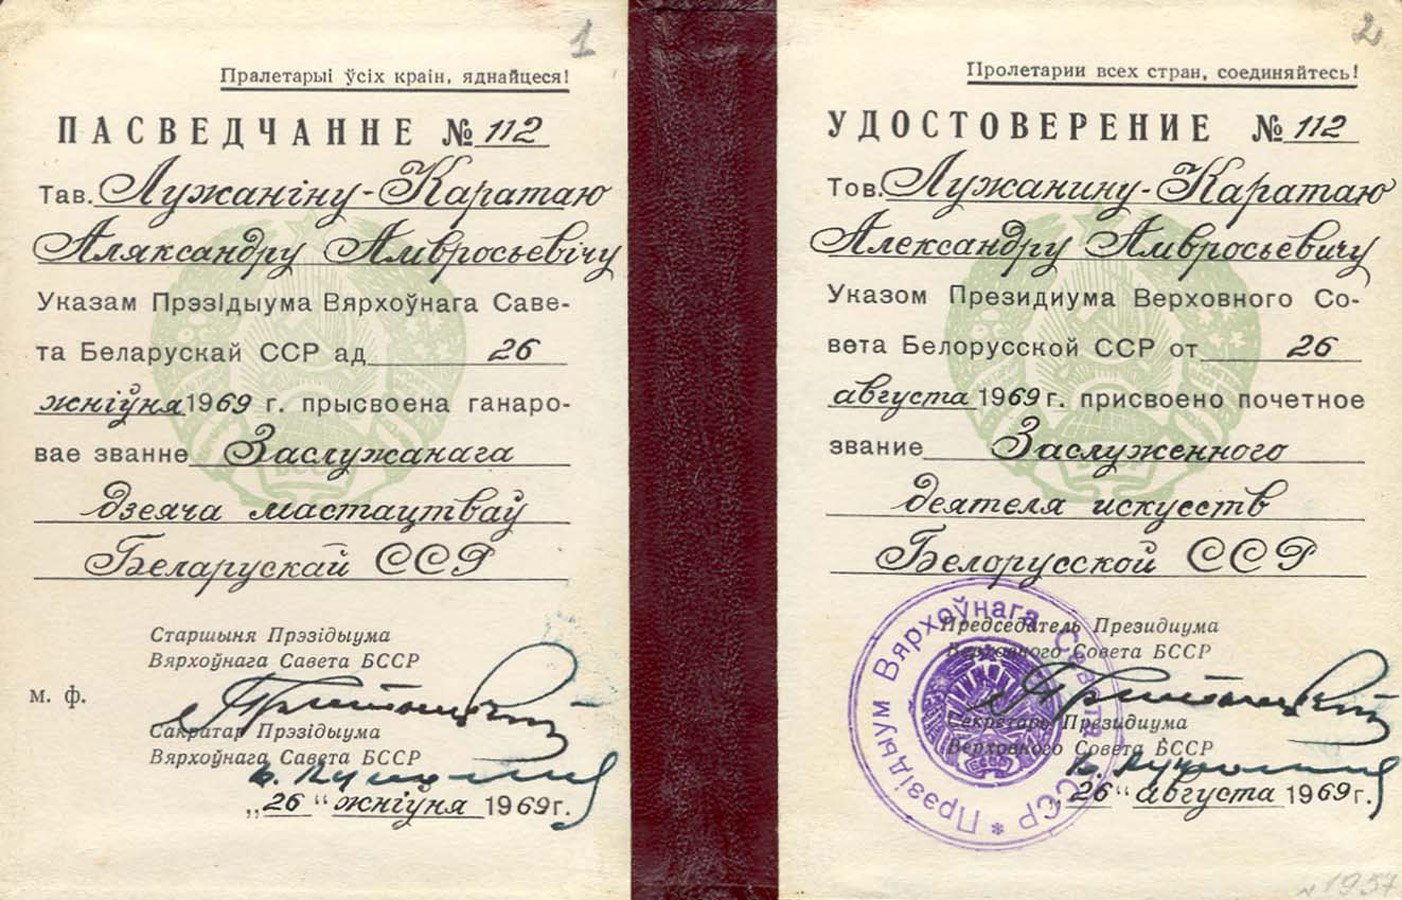 1
Пралетарыі ўсіх краін, яднайцеся!
ПАСВЕДЧАННЕ № 112
Тав. Лужаніну-Каратаю
Аляксандру Амвросьевічу
Указам Прэзідыума Вярхоўнага Саве-
та Беларускай ССР ад 26
жніўня 1969 г. прысвоена ганаро-
вае званне Заслужанага
дзеяча мастацтваў
Беларускай ССР
Старшыня Прэзідыума
Вярхоўнага Савета БССР
м. ф.
Сакратар Прэзідыума
Вярхоўнага Савета БССР
„26“ жніўня 1969 г.
2
Пролетарии всех стран, соединяйтесь!
УДОСТОВЕРЕНИЕ № 112
Тов. Лужанину-Каратаю
Александру Амвросьевичу
Указом Президиума Верховного Со-
вета Белорусской ССР от 26
августа 1969 г. присвоено почетное
звание Заслуженного
деятеля искусств
Белорусской ССР
Председатель Президиума
Верховного Совета БССР
Секретарь Президиума
Верховного Совета БССР
„26“ августа 1969 г.
Прэзідыум Вярхоўнага Савета БССР *
БССР
1957